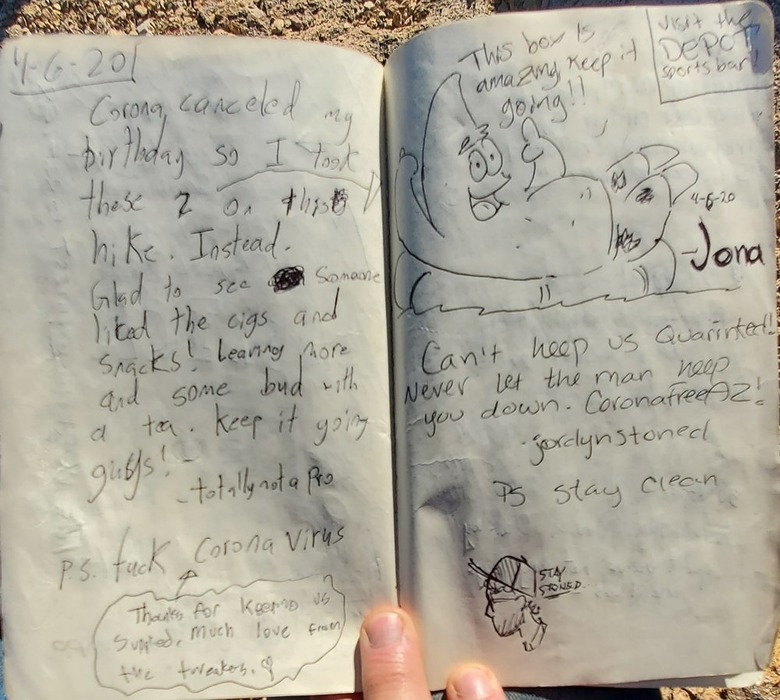 4-6-20
Corona canceled my
birthday so I took
these 2 on this
hike. Instead.
Glad to see Someone
liked the cigs and
snacks! Leaving more
and some bud with
a tea. keep it going
guys!
-totally not a Pro
P.S. fuck Corona Virus
Thanks for keeping us
Supplied. Much love from
the tweakers.
This box is
amazing, keep it
going!!
Visit the
DEPOT
sports bar!
4-6-20
-Jona
Can't keep us Quarinteed!!
Never let the man keep
you down. CoronafreeAZ!
-jordynstoned
PS stay clean
STAY
STONED.